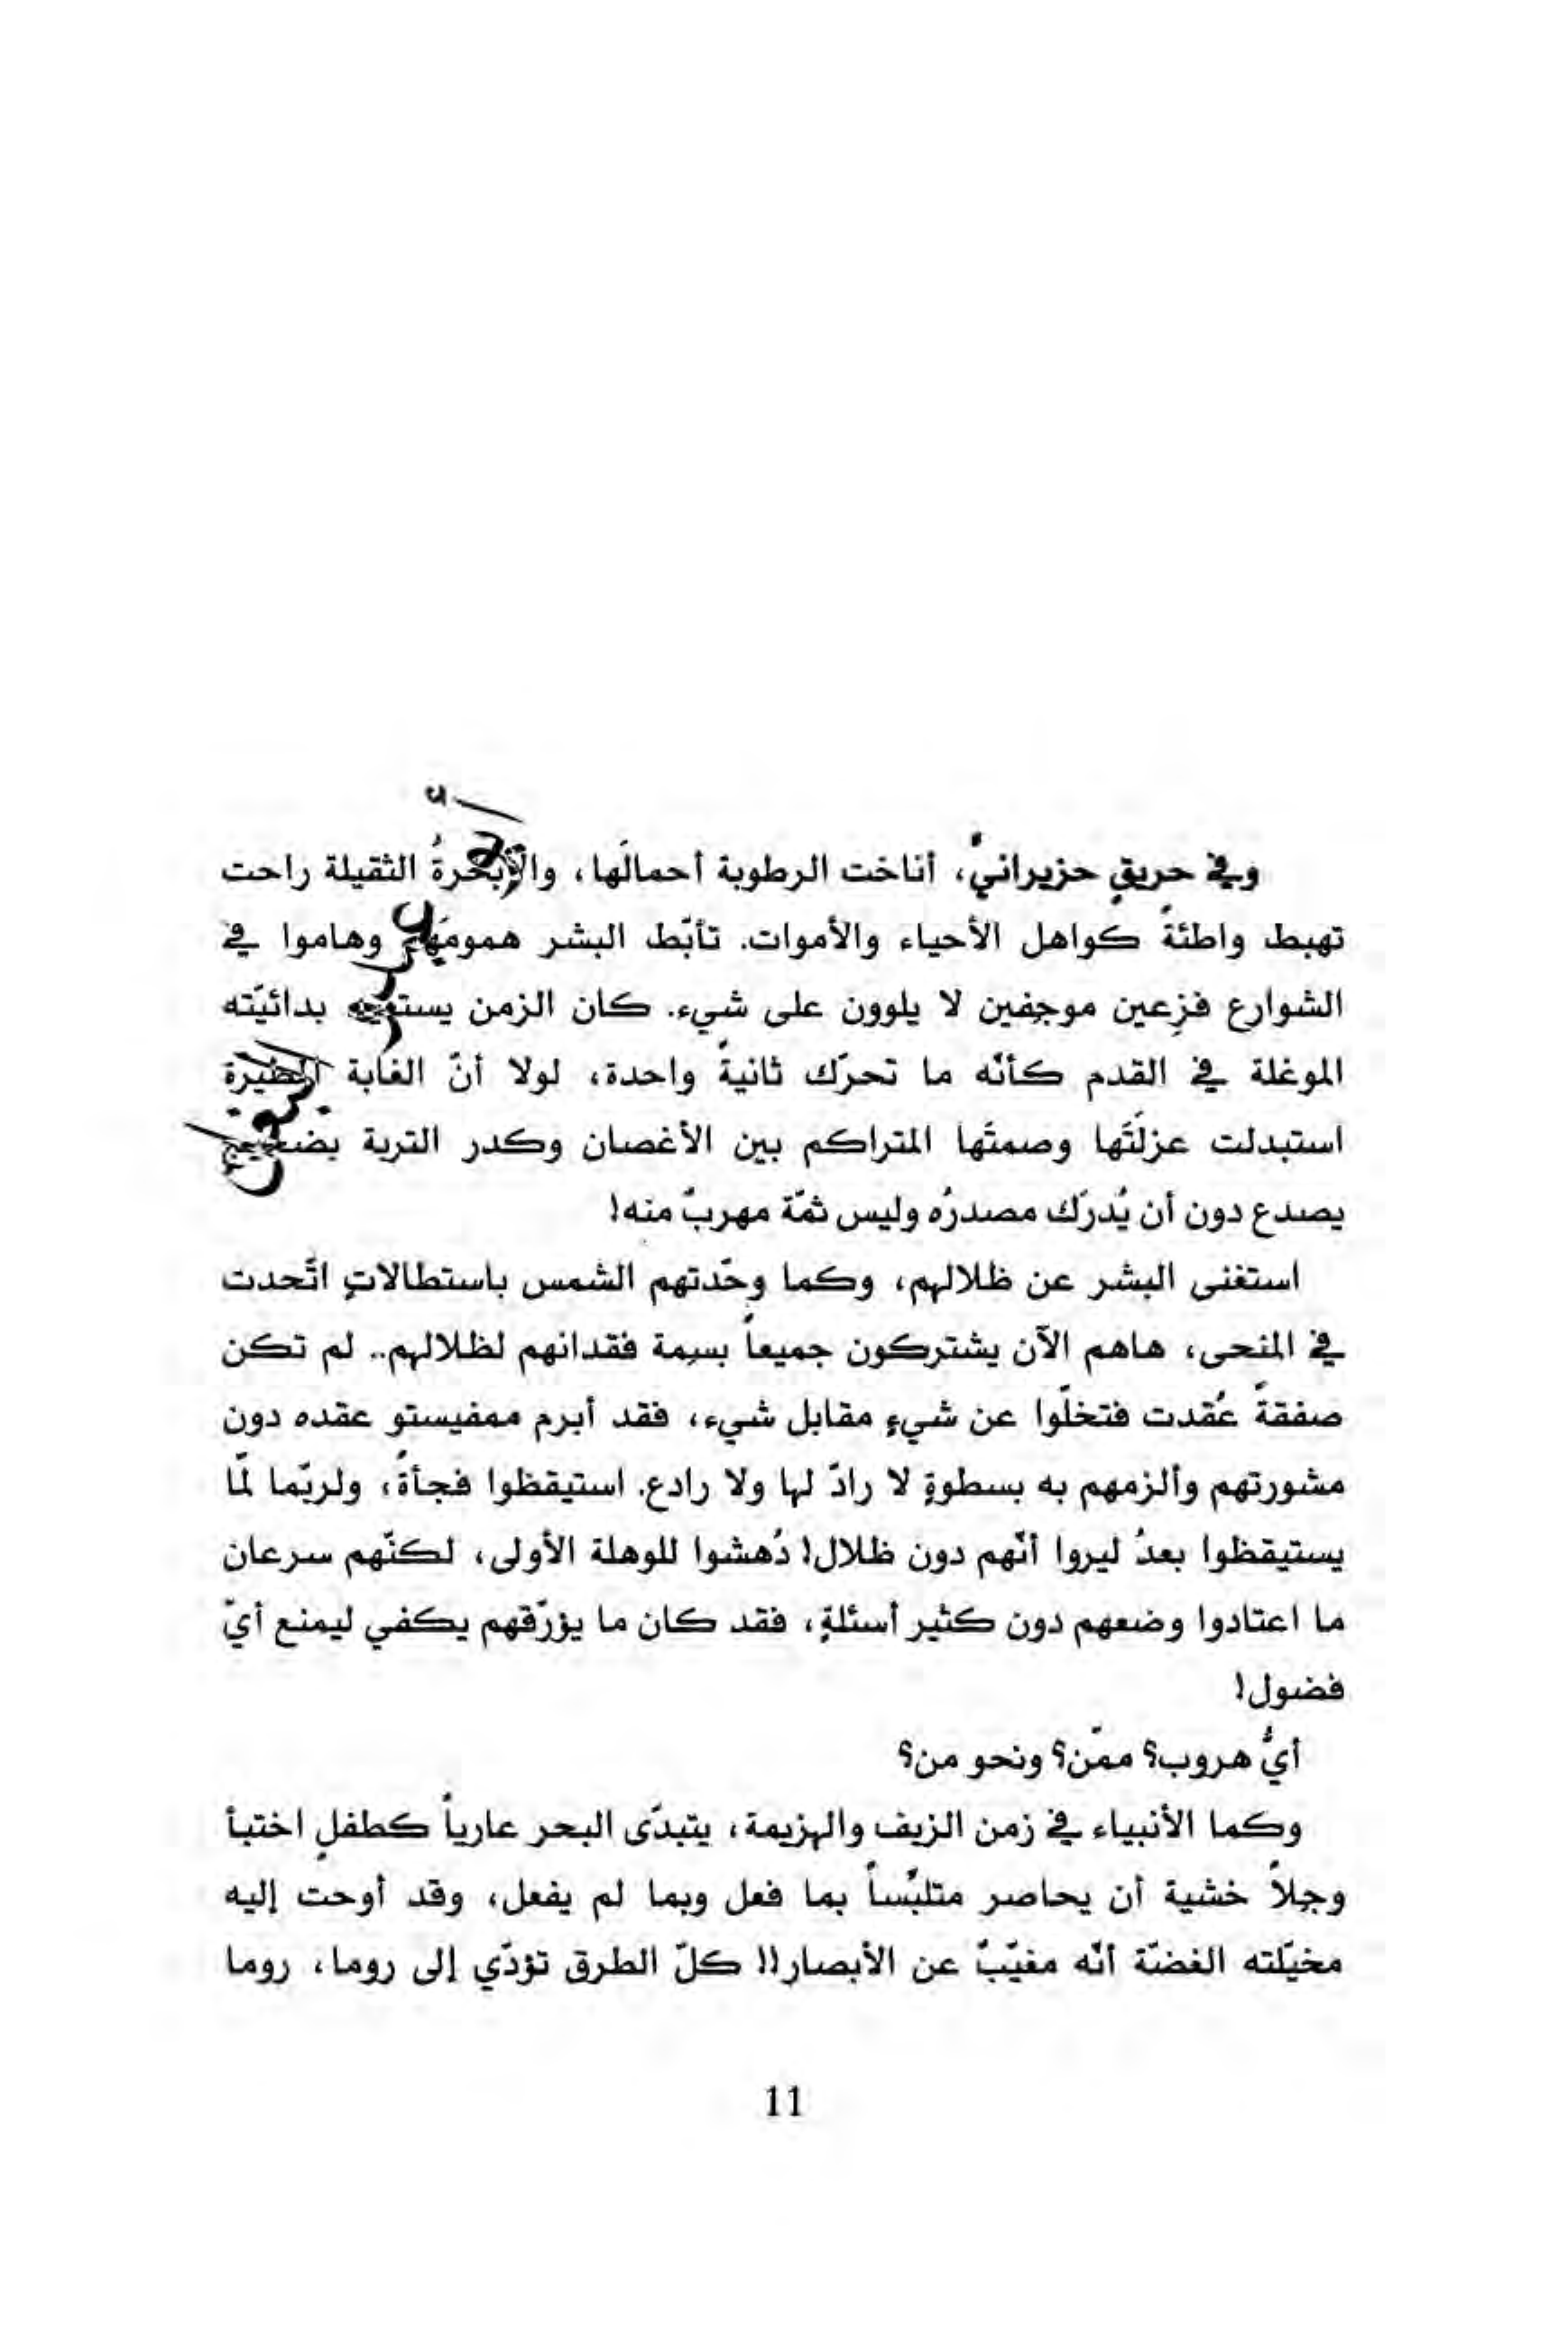 وفي حريقٍ حزيرانيٍّ، أناخت الرطوبة أحمالَها، والأبخرةُ الثقيلة راحت
تهبط واطئةً كواهل الأحياء والأموات. تأبّط البشر همومَهم وهاموا في
الشوارع فزِعين موجفين لا يلوون على شيء. كان الزمن بدائيّته
الموغلة في القدم كأنّه ما تحرّك ثانيةً واحدة، لولا أنّ الغابة المطيرة
استبدلت عزلتَها وصمتَها المتراكم بين الأغصان وكدر التربة بضجيج
يصدع دون أن يُدرَك مصدرُه وليس ثمّة مهربٌ منه!
استغنى البشر عن ظلالهم، وكما وحّدتهم الشمس باستطالاتٍ اتّحدت
في المنحى، هاهم الآن يشتركون جميعاً بسِمة فقدانهم لظلالهم.. لم تكن
صفقةً عُقدت فتخلّوا عن شيءٍ مقابل شيء، فقد أبرم ممفيستو عقده دون
مشورتهم وألزمهم به بسطوةٍ لا رادّ لها ولا رادع. استيقظوا فجأةً، ولربّما لمّا
يستيقظوا بعدُ ليروا أنّهم دون ظلال! دُهشوا للوهلة الأولى، لكنّهم سرعان
ما اعتادوا وضعهم دون كثير أسئلةٍ، فقد كان ما يؤرّقهم يكفي ليمنع أيّ
فضول!
أيُّ هروب؟ ممّن؟ ونحو من؟
وكما الأنبياء في زمن الزيف والهزيمة، يتبدّى البحر عارياً كطفلٍ اختبأ
وجِلاً خشية أن يحاصر متلبِّساً بما فعل وبما لم يفعل، وقد أوحت إليه
مخيّلته الغضّة أنّه مغيّبٌ عن الأبصار!! كلّ الطرق تؤدّي إلى روما، روما
11